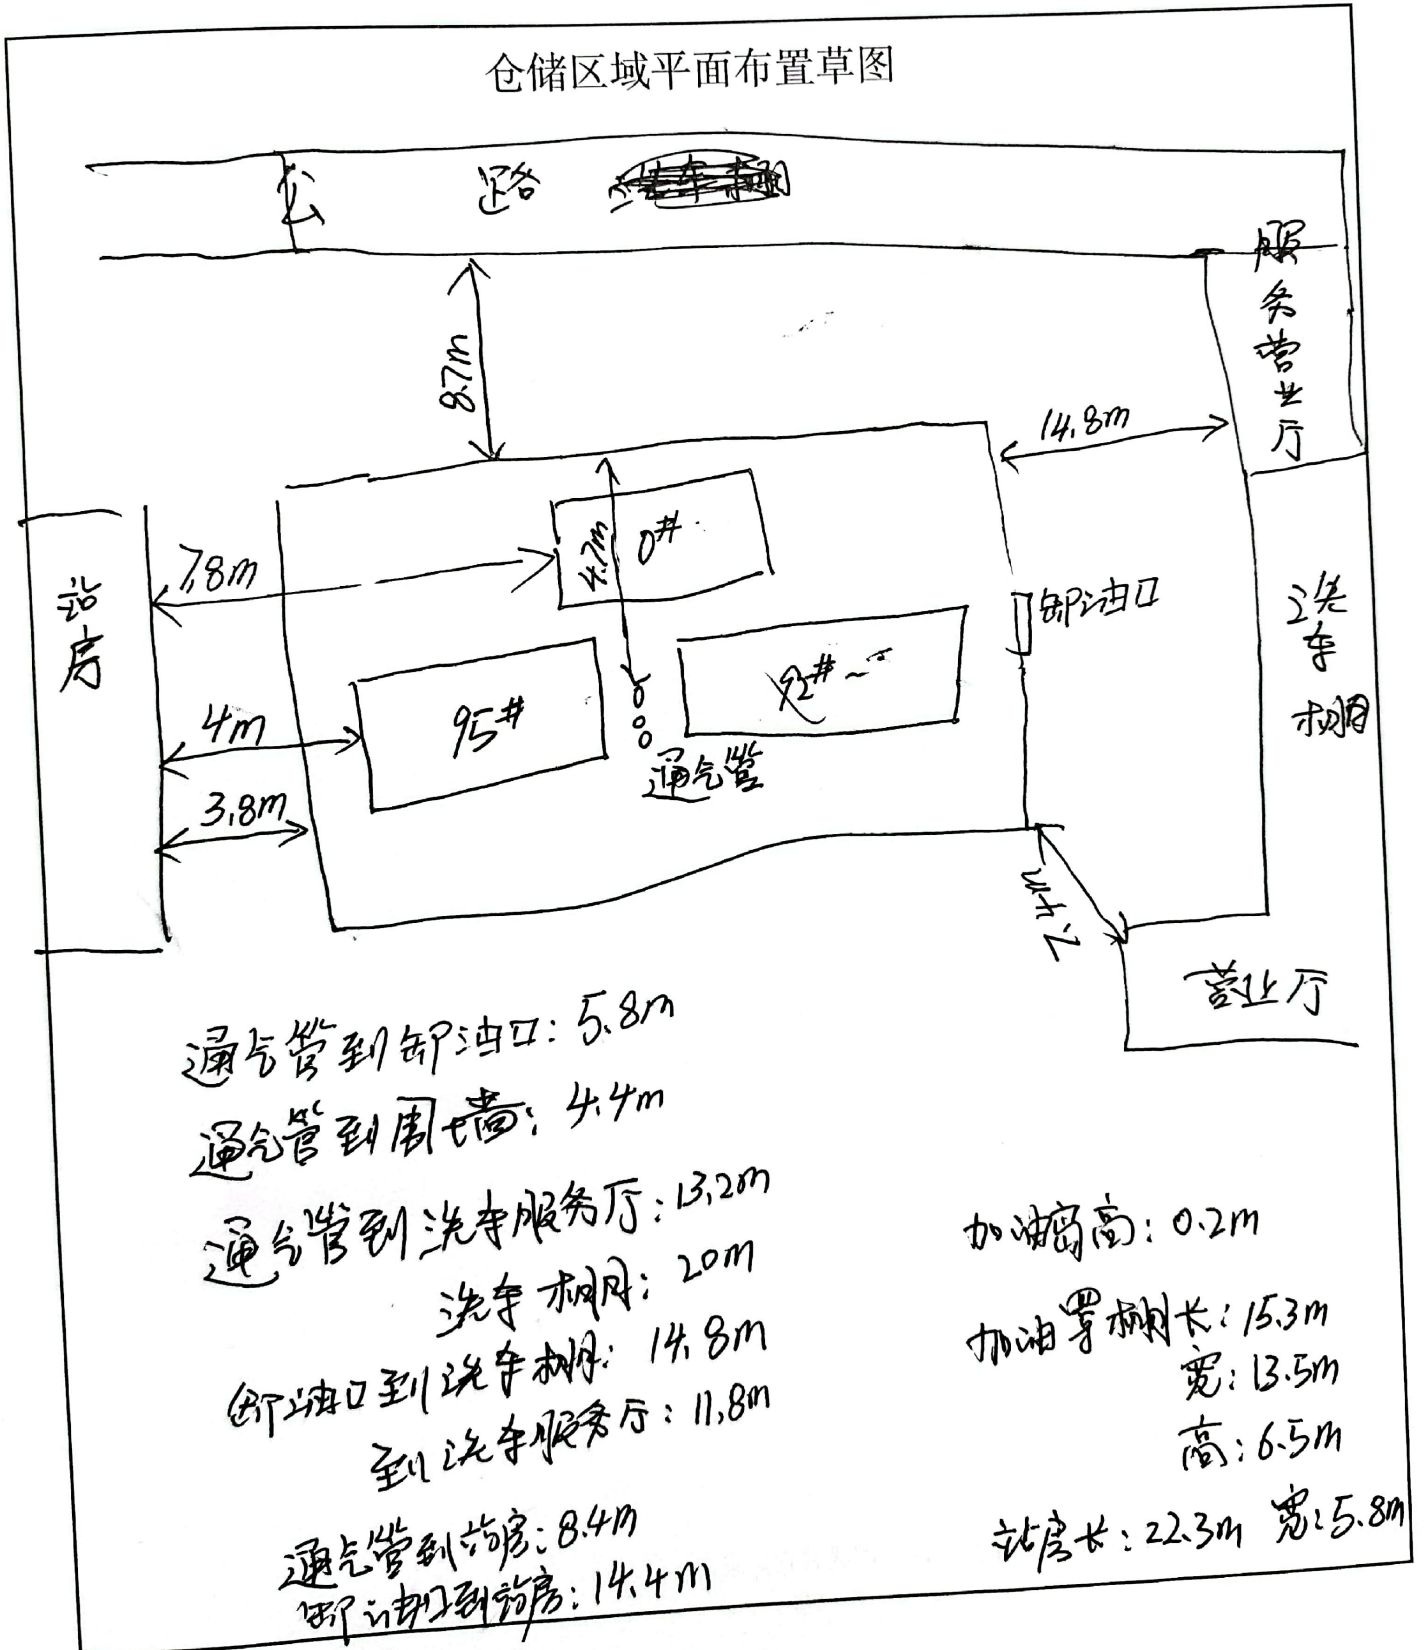 仓储区域平面布置草图
公 路
服务营业厅
8.7m
14.8m
4.7m
0#
7.8m
站房
卸油口
洗车棚
95#
92#
4m
通气管
3.8m
7.4m
营业厅
通气管到卸油口：5.8m
通气管到围墙：4.4m
通气管到洗车服务厅：13.2m
洗车棚：20m
卸油口到洗车棚：14.8m
到洗车服务厅：11.8m
通气管到站房：8.4m
卸油口到站房：14.4m
加油岛高：0.2m
加油罩棚长：15.3m
宽：13.5m
高：6.5m
站房长：22.3m 宽：5.8m